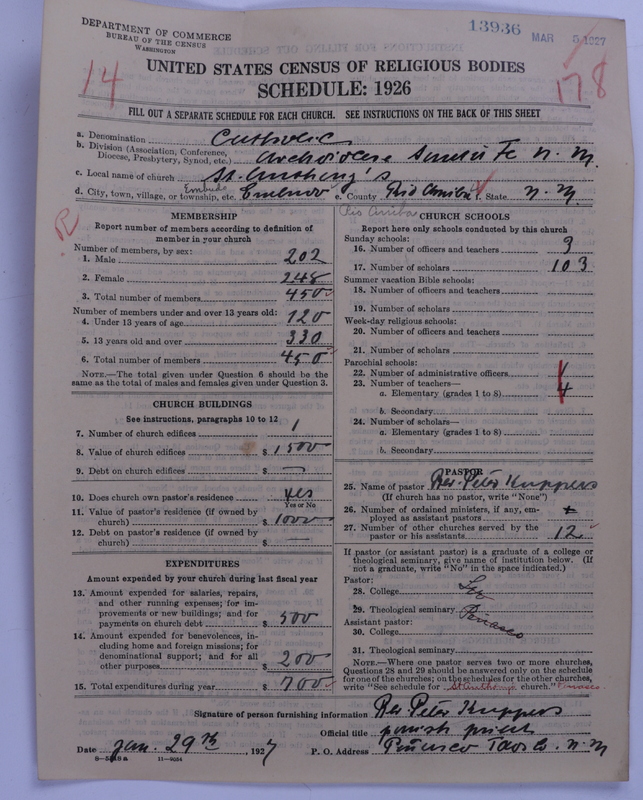 13936
MAR 5 1927
DEPARTMENT OF COMMERCE
BUREAU OF THE CENSUS
WASHINGTON
14
178
UNITED STATES CENSUS OF RELIGIOUS BODIES
SCHEDULE: 1926
FILL OUT A SEPARATE SCHEDULE FOR EACH CHURCH. SEE INSTRUCTIONS ON THE BACK OF THIS SHEET
a. Denomination Catholic
b. Division (Association, Conference, Diocese, Presbytery, Synod, etc.) Archdiocese Santa Fe N. M.
c. Local name of church St. Anthony's
d. City, town, village, or township, etc. Embudo e. County Rio Arriba f. State N. M.
Embudo
Rio Arriba
R
MEMBERSHIP
Report number of members according to definition of
member in your church
Number of members, by sex:
1. Male 202
2. Female 248
3. Total number of members 450
Number of members under and over 13 years old:
4. Under 13 years of age 120
5. 13 years old and over 330
6. Total number of members 450
NOTE.—The total given under Question 6 should be
same as the total of males and females given under Question 3.
CHURCH BUILDINGS
See instructions, paragraphs 10 to 12
7. Number of church edifices 1
8. Value of church edifices $ 1500
9. Debt on church edifices $ —
10. Does church own pastor's residence yes
Yes or No
11. Value of pastor's residence (if owned by
church) $ 1000
12. Debt on pastor's residence (if owned by
church) $ —
EXPENDITURES
Amount expended by your church during last fiscal year
13. Amount expended for salaries, repairs,
and other running expenses; for im-
provements or new buildings; and for
payments on church debt $ 500
14. Amount expended for benevolences, in-
cluding home and foreign missions; for
denominational support; and for all
other purposes $ 200
15. Total expenditures during year $ 700
CHURCH SCHOOLS
Report here only schools conducted by this church
Sunday schools:
16. Number of officers and teachers 9
17. Number of scholars 103
Summer vacation Bible schools:
18. Number of officers and teachers
19. Number of scholars
Week-day religious schools:
20. Number of officers and teachers
21. Number of scholars
Parochial schools:
22. Number of administrative officers
23. Number of teachers—
a. Elementary (grades 1 to 8) 4
b. Secondary
24. Number of scholars—
a. Elementary (grades 1 to 8)
b. Secondary
PASTOR
25. Name of pastor Rev. Peter Kuppers
(If church has no pastor, write "None")
26. Number of ordained ministers, if any, em-
ployed as assistant pastors
27. Number of other churches served by the
pastor or his assistants 12
If pastor (or assistant pastor) is a graduate of a college or
theological seminary, give name of institution below. (If
not a graduate, write "No" in the space indicated.)
Pastor:
28. College See
29. Theological seminary Penasco
Assistant pastor:
30. College
31. Theological seminary
NOTE.—Where one pastor serves two or more churches,
Questions 28 and 29 should be answered only on the schedule
for one of the churches; on the schedules for the other churches,
write "See schedule for St Anthonys church." Penasco
Signature of person furnishing information Rev Peter Kuppers
Official title parish priest
Date Jan. 29th, 1927 P. O. Address Peñasco Taos Co. N. M
11—9034